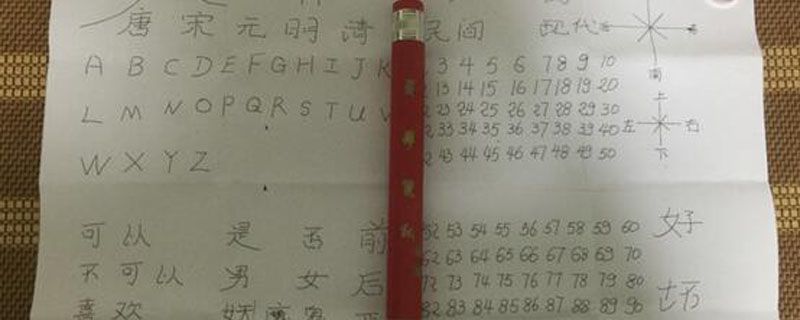 唐 宋 元 明 清 民间 现代
A B C D E F G H I J K 3 4 5 6 7 8 9 10
南
13 14 15 16 17 18 19 20
上
L M N O P Q R S T U V 23 24 25 26 27 28 29 30
33 34 35 36 37 38 39 40 左 右
W X Y Z 43 44 45 46 47 48 49 50 下
可以 是 否 前 52 53 54 55 56 57 58 59 60 好
62 63 64 65 66 67 68 69 70
不可以 男 女 后 73 74 75 76 77 78 79 80
喜欢 82 83 84 85 86 87 88 89 90 坏